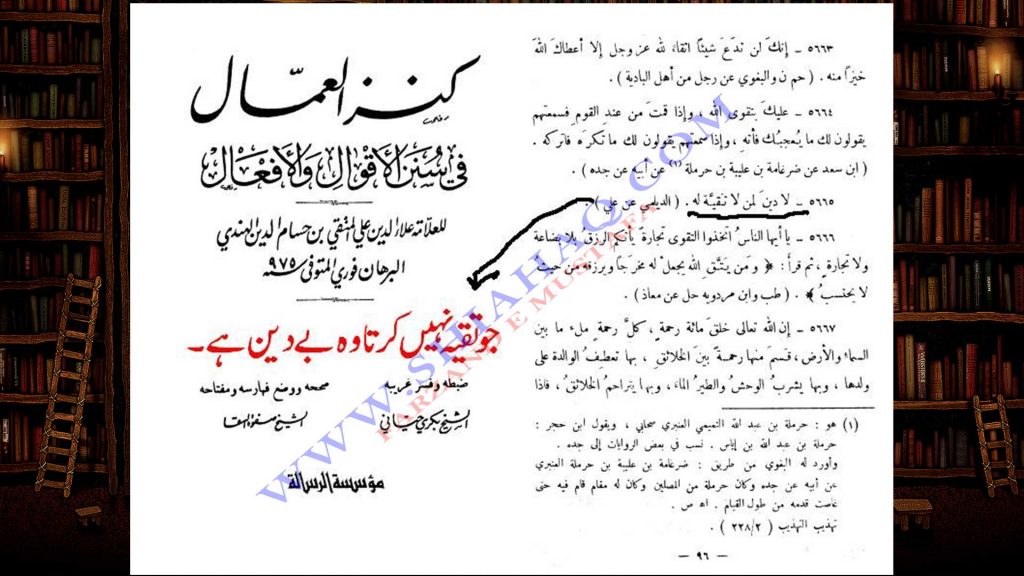 كنز العمّال
في سنن الأقوال والأفعال
للعلامة علاء الدين علي المتقي بن حسام الدين الهندي
البرهان فوري المتوفى سنة ٩٧٥
جو تقیہ نہیں کرتا وہ بے دین ہے۔
ضبطه وفسر غريبه
الشيخ بكري حياني
صححه ووضع فهارسه ومفتاحه
الشيخ صفوة السقا
مؤسسة الرسالة
٥٦٦٣ ـ إنكَ لن تدَعَ شيئاً اتقاءَ لله عز وجل إلا أعطاكَ اللهُ
خيراً منه . ( حم ن والبغوي عن رجل من أهل البادية ) .
٥٦٦٤ ـ عليكَ بتقوى الله ، وإذا قمتَ من عند القوم فسمعتهم
يقولون لك ما يُعجبُك فأته ، وإذا سمعتهم يقولون لك ما تكرَه فاتركه .
( ابن سعد عن ضرغامة بن علية بن حرملة (١) عن أبيه عن جده ) .
٥٦٦٥ ـ لا دينَ لمن لا تقيَّة له . ( الديلمي عن علي ) .
٥٦٦٦ ـ يا أيها الناسُ اتخذوا التقوى تجارة يأتكم الرزقُ بلا بضاعة
ولا تجارة ، ثم قرأ : ﴿ ومَن يتَّق الله يجعلْ له مخرَجاً ويرزقه من حيثُ
لا يحتسبُ ﴾ . ( طب وابن مردويه حل عن معاذ ) .
٥٦٦٧ ـ إن الله تعالى خلقَ مائة رحمةٍ ، كلُّ رحمةٍ ملء ما بين
السماء والأرض ، قسمَ منها رحمةً بينَ الخلائقِ ، بها تعطفُ الوالدة على
ولدها ، وبها يشربُ الوحشُ والطيرُ الماءَ ، وبها يتراحمُ الخلائقُ ، فاذا
(١) هو : حرملة بن عبد الله التميمي العنبري صحابي ، ويقول ابن حجر :
حرملة بن عبد الله بن إياس . نسب في بعض الروايات إلى جده .
وأورد له البغوي من طريق : ضرغامة بن علية بن حرملة العنبري
عن أبيه عن جده وكان حرملة من المصلين وكان له مقام قام فيه حتى
غاصت قدمه من طول القيام . اه ص .
تهذيب التهذيب ( ٢٢٨/٢ ) .
ـ ٩٦ ـ
WWW.SHIAHAQ.COM
FARZAND E MUSTAFA